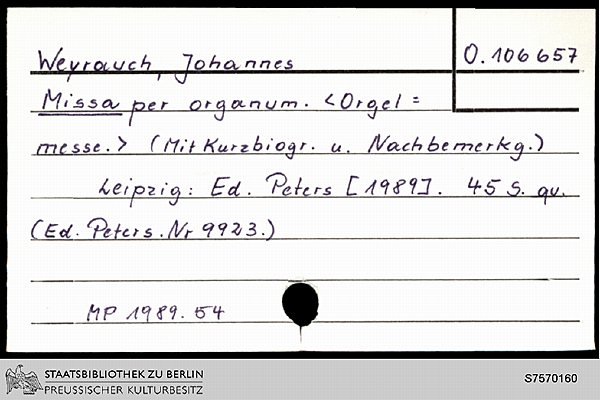 Weyrauch, Johannes
O. 106 657
Missa per organum. <Orgel=
messe.> (Mit Kurzbiogr. u. Nachbemerkg.)
Leipzig: Ed. Peters [1989]. 45 S. qu.
(Ed. Peters. Nr 9923.)
MP 1989. 54
STAATSBIBLIOTHEK ZU BERLIN
PREUSSISCHER KULTURBESITZ
S7570160